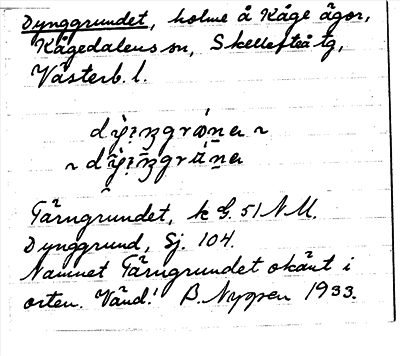 Dynggrundet, holme å Kåge ägor,
Kågedalens sn, Skellefteå tg,
Västerb. l.
Tärngrundet, k G. 51 N M.
Dynggrund, Sj. 104.
Namnet Tärngrundet okänt i
orten. Vänd! B. Nyman 1933.